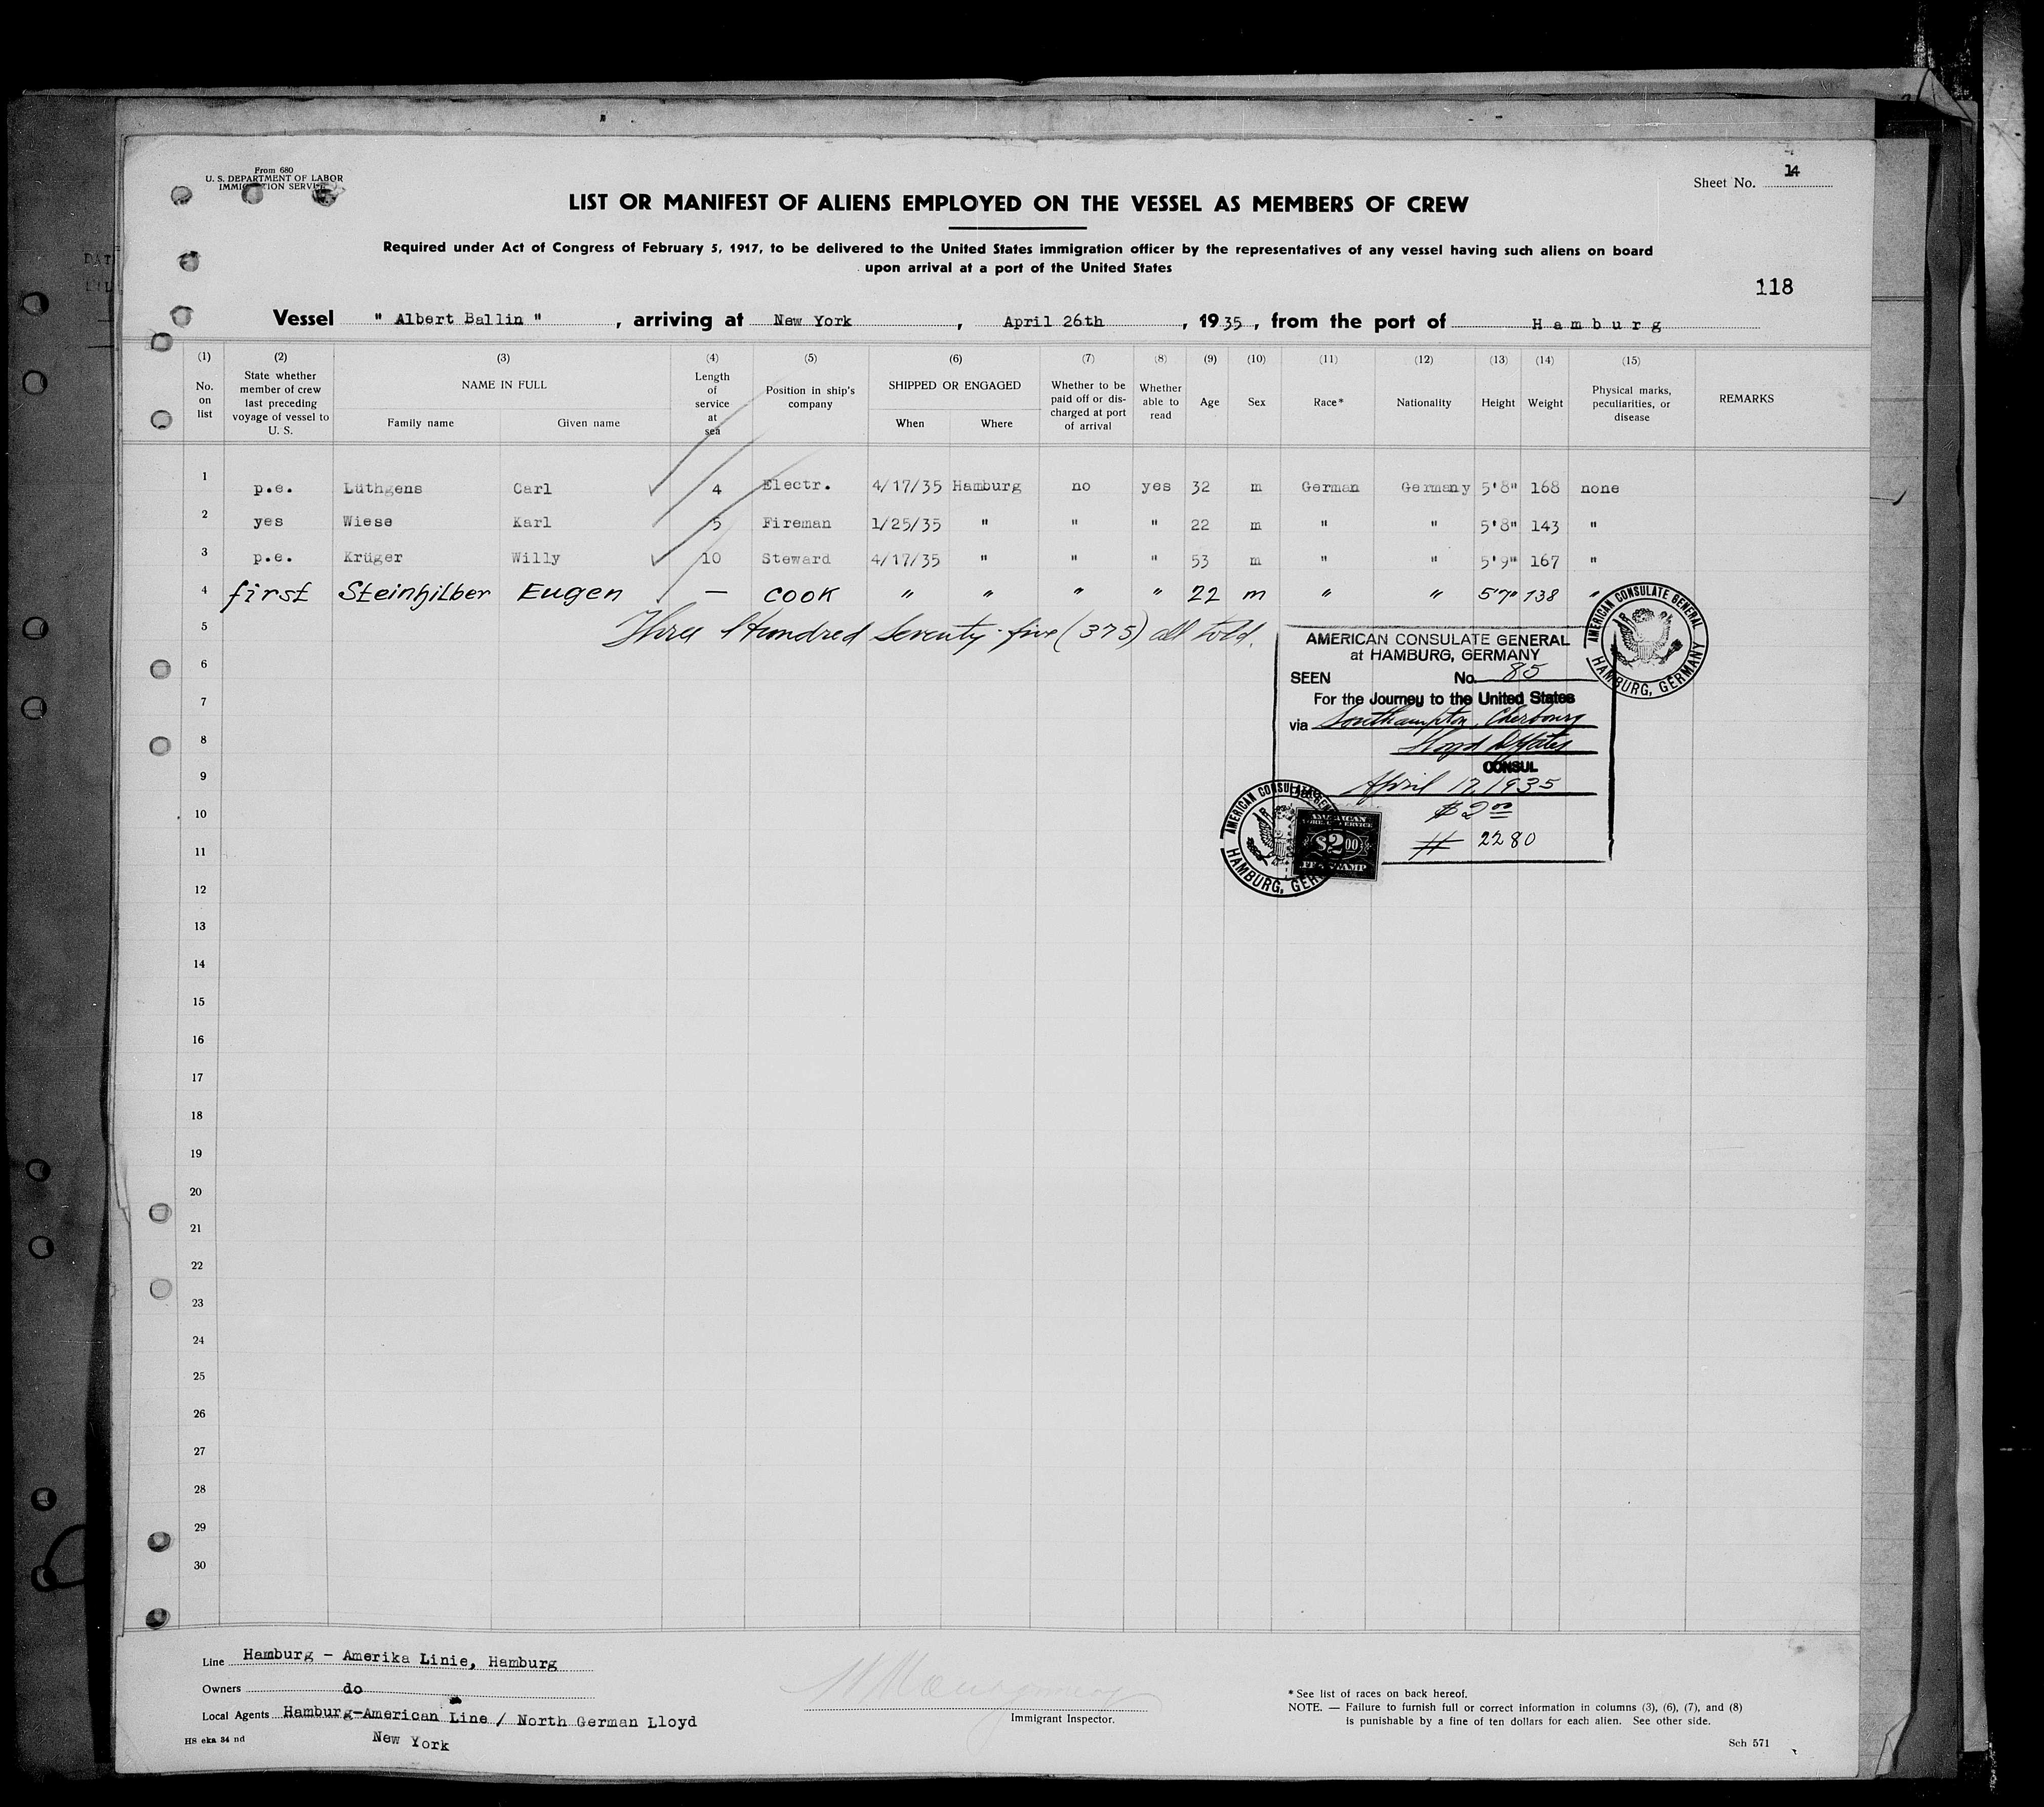 From 680
U. S. DEPARTMENT OF LABOR
IMMIGRATION SERVICE
Sheet No. 14
LIST OR MANIFEST OF ALIENS EMPLOYED ON THE VESSEL AS MEMBERS OF CREW
Required under Act of Congress of February 5, 1917, to be delivered to the United States immigration officer by the representatives of any vessel having such aliens on board
upon arrival at a port of the United States
118
Vessel " Albert Ballin ", arriving at New York, April 26th, 1935, from the port of Hamburg
(1) (2) (3) (4) (5) (6) (7) (8) (9) (10) (11) (12) (13) (14) (15)
No. on list State whether member of crew last preceding voyage of vessel to U. S. NAME IN FULL Family name Given name Length of service at sea Position in ship's company SHIPPED OR ENGAGED When Where Whether to be paid off or discharged at port of arrival Whether able to read Age Sex Race* Nationality Height Weight Physical marks, peculiarities, or disease REMARKS
1 p.e. Lüthgens Carl 4 Electr. 4/17/35 Hamburg no yes 32 m German Germany 5'8" 168 none
2 yes Wiese Karl 5 Fireman 1/25/35 " " " 22 m " " 5'8" 143 "
3 p.e. Krüger Willy 10 Steward 4/17/35 " " " 53 m " " 5'9" 167 "
4 first Steinhilber Eugen — cook " " " " 22 m " " 5'7" 138 "
5 Three Hundred Seventy-five (375) all told.
6
7
8
9
10
11
12
13
14
15
16
17
18
19
20
21
22
23
24
25
26
27
28
29
30
AMERICAN CONSULATE GENERAL
at HAMBURG, GERMANY
SEEN No. 85
For the Journey to the United States
via Southampton, Cherbourg
CONSUL
April 17, 1935
$2.00
# 2280
AMERICAN CONSULATE GENERAL HAMBURG, GERMANY
AMERICAN CONSULATE GENERAL HAMBURG, GERMANY
AMERICAN
FOREIGN SERVICE
$2.00
FEE STAMP
Line Hamburg - Amerika Linie, Hamburg
Owners do
Local Agents Hamburg-American Line / North German Lloyd
New York
HS eka 34 nd
Immigrant Inspector.
* See list of races on back hereof.
NOTE. — Failure to furnish full or correct information in columns (3), (6), (7), and (8)
is punishable by a fine of ten dollars for each alien. See other side.
Sch 571